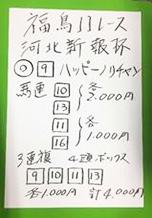 福島11レース
河北新報杯
◎ 9 ハッピーノリチャン
馬連 10 各
13 2.000円
11 各
16 1.000円
3連複 4頭ボックス
9 10 11 13
各1.000円 計4.000円